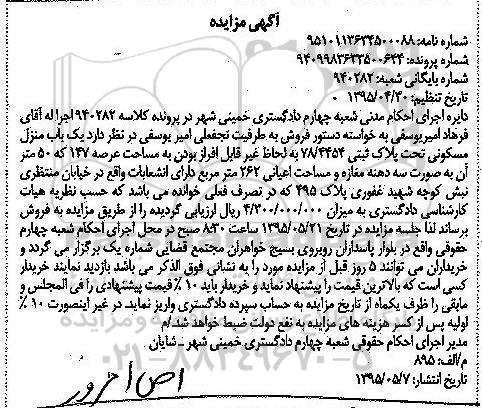 آگهی مزایده
شماره نامه: ۹۵۱۰۱۱۳۶۳۴۵۰۰۰۸۸
شماره پرونده: ۹۴۰۹۹۸۳۶۳۳۵۰۰۶۴۴
شماره بایگانی شعبه: ۹۴۰۲۸۲
تاریخ تنظیم: ۱۳۹۵/۰۴/۳۰
دایره اجرای احکام مدنی شعبه چهارم دادگستری خمینی شهر در پرونده کلاسه ۹۴۰۲۸۲ اجرا له آقای
فرهاد امیریوسفی به خواسته دستور فروش به طرفیت نجفعلی امیر یوسفی در نظر دارد یک باب منزل
مسکونی تحت پلاک ثبتی ۷۸/۴۴۵۴ به لحاظ غیر قابل افراز بودن به مساحت عرصه ۱۴۷ که ۵۰ متر
آن به صورت سه دهنه مغازه و مساحت اعیانی ۲۶۲ متر مربع دارای انشعابات واقع در خیابان منتظری
نبش کوچه شهید غفوری پلاک ۴۹۵ که در تصرف فعلی خوانده می باشد که حسب نظریه هیات
کارشناسی دادگستری به میزان ۴/۳۰۰/۰۰۰/۰۰۰ ریال ارزیابی گردیده را از طریق مزایده به فروش
برساند لذا جلسه مزایده در تاریخ ۱۳۹۵/۰۵/۲۱ ساعت ۸:۳۰ صبح در محل اجرای احکام شعبه چهارم
حقوقی واقع در بلوار پاسداران روبروی بسیج خواهران مجتمع قضایی شماره یک برگزار می گردد و
خریداران می توانند ۵ روز قبل از مزایده مورد را به نشانی فوق الذکر می باشد بازدید نمایند خریدار
کسی است که بالاترین قیمت را پیشنهاد نماید و خریدار باید ۱۰ ٪ قیمت پیشنهادی را فی المجلس و
مابقی را ظرف یکماه از تاریخ مزایده به حساب سپرده دادگستری واریز نماید. در غیر اینصورت ۱۰ ٪
اولیه پس از کسر هزینه های مزایده به نفع دولت ضبط خواهد شد/م
مدیر اجرای احکام حقوقی شعبه چهارم دادگستری خمینی شهر _ شایان
م/الف: ۸۹۵
تاریخ انتشار: ۱۳۹۵/۰۵/۷
۰۲۱-۸۸۳۴۹۶۷۰-۵